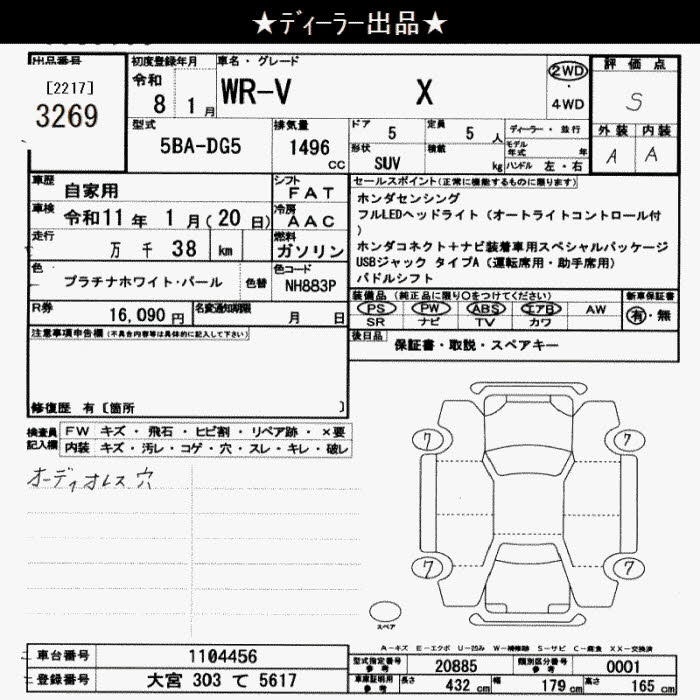 ★ディーラー出品★
出品番号
[2217]
3269
初度登録年月
令和 8 1 月
車名・グレード
WR-V X
2WD
・
4WD
評価点
S
外装 内装
A A
型式
5BA-DG5
排気量
1496 cc
ドア 5 定員 5 人
形状 SUV 積載 kg
ディーラー・並行
モデル年式 年
ハンドル 左・右
車歴 自家用
シフト FAT
車検 令和11年 1月(20日)
冷房 AAC
走行 万 千 38 km
燃料 ガソリン
色 プラチナホワイト・パール 色替
色コード NH883P
R券 16,090円
名変通知期限 月 日
セールスポイント(正常に機能するものに限ります)
ホンダセンシング
フルLEDヘッドライト (オートライトコントロール付
)
ホンダコネクト+ナビ装着車用スペシャルパッケージ
USBジャック タイプA (運転席用・助手席用)
パドルシフト
装備品 (純正品に限り○をつけてください)
PS PW ABS エアB AW
SR ナビ TV カワ
新車保証書
有・無
後日品 保証書・取説・スペアキー
注意事項申告欄(不具合内容等は具体的に記入して下さい)
修復歴 有〔箇所 〕
検査員記入欄
FW キズ・飛石・ヒビ割・リペア跡・×要
内装 キズ・汚レ・コゲ・穴・スレ・キレ・破レ
オーディオレス穴
7 7
7 7
スペア
A-キズ E-エクボ U-凹み W-補修跡 S-サビ C-腐食 XX-交換済
車台番号 1104456
登録番号 大宮 303 て 5617
型式指定番号 参考 20885
類別区分番号 参考 0001
車庫証明用 参考 長さ 432 cm 幅 179 cm 高さ 165 cm